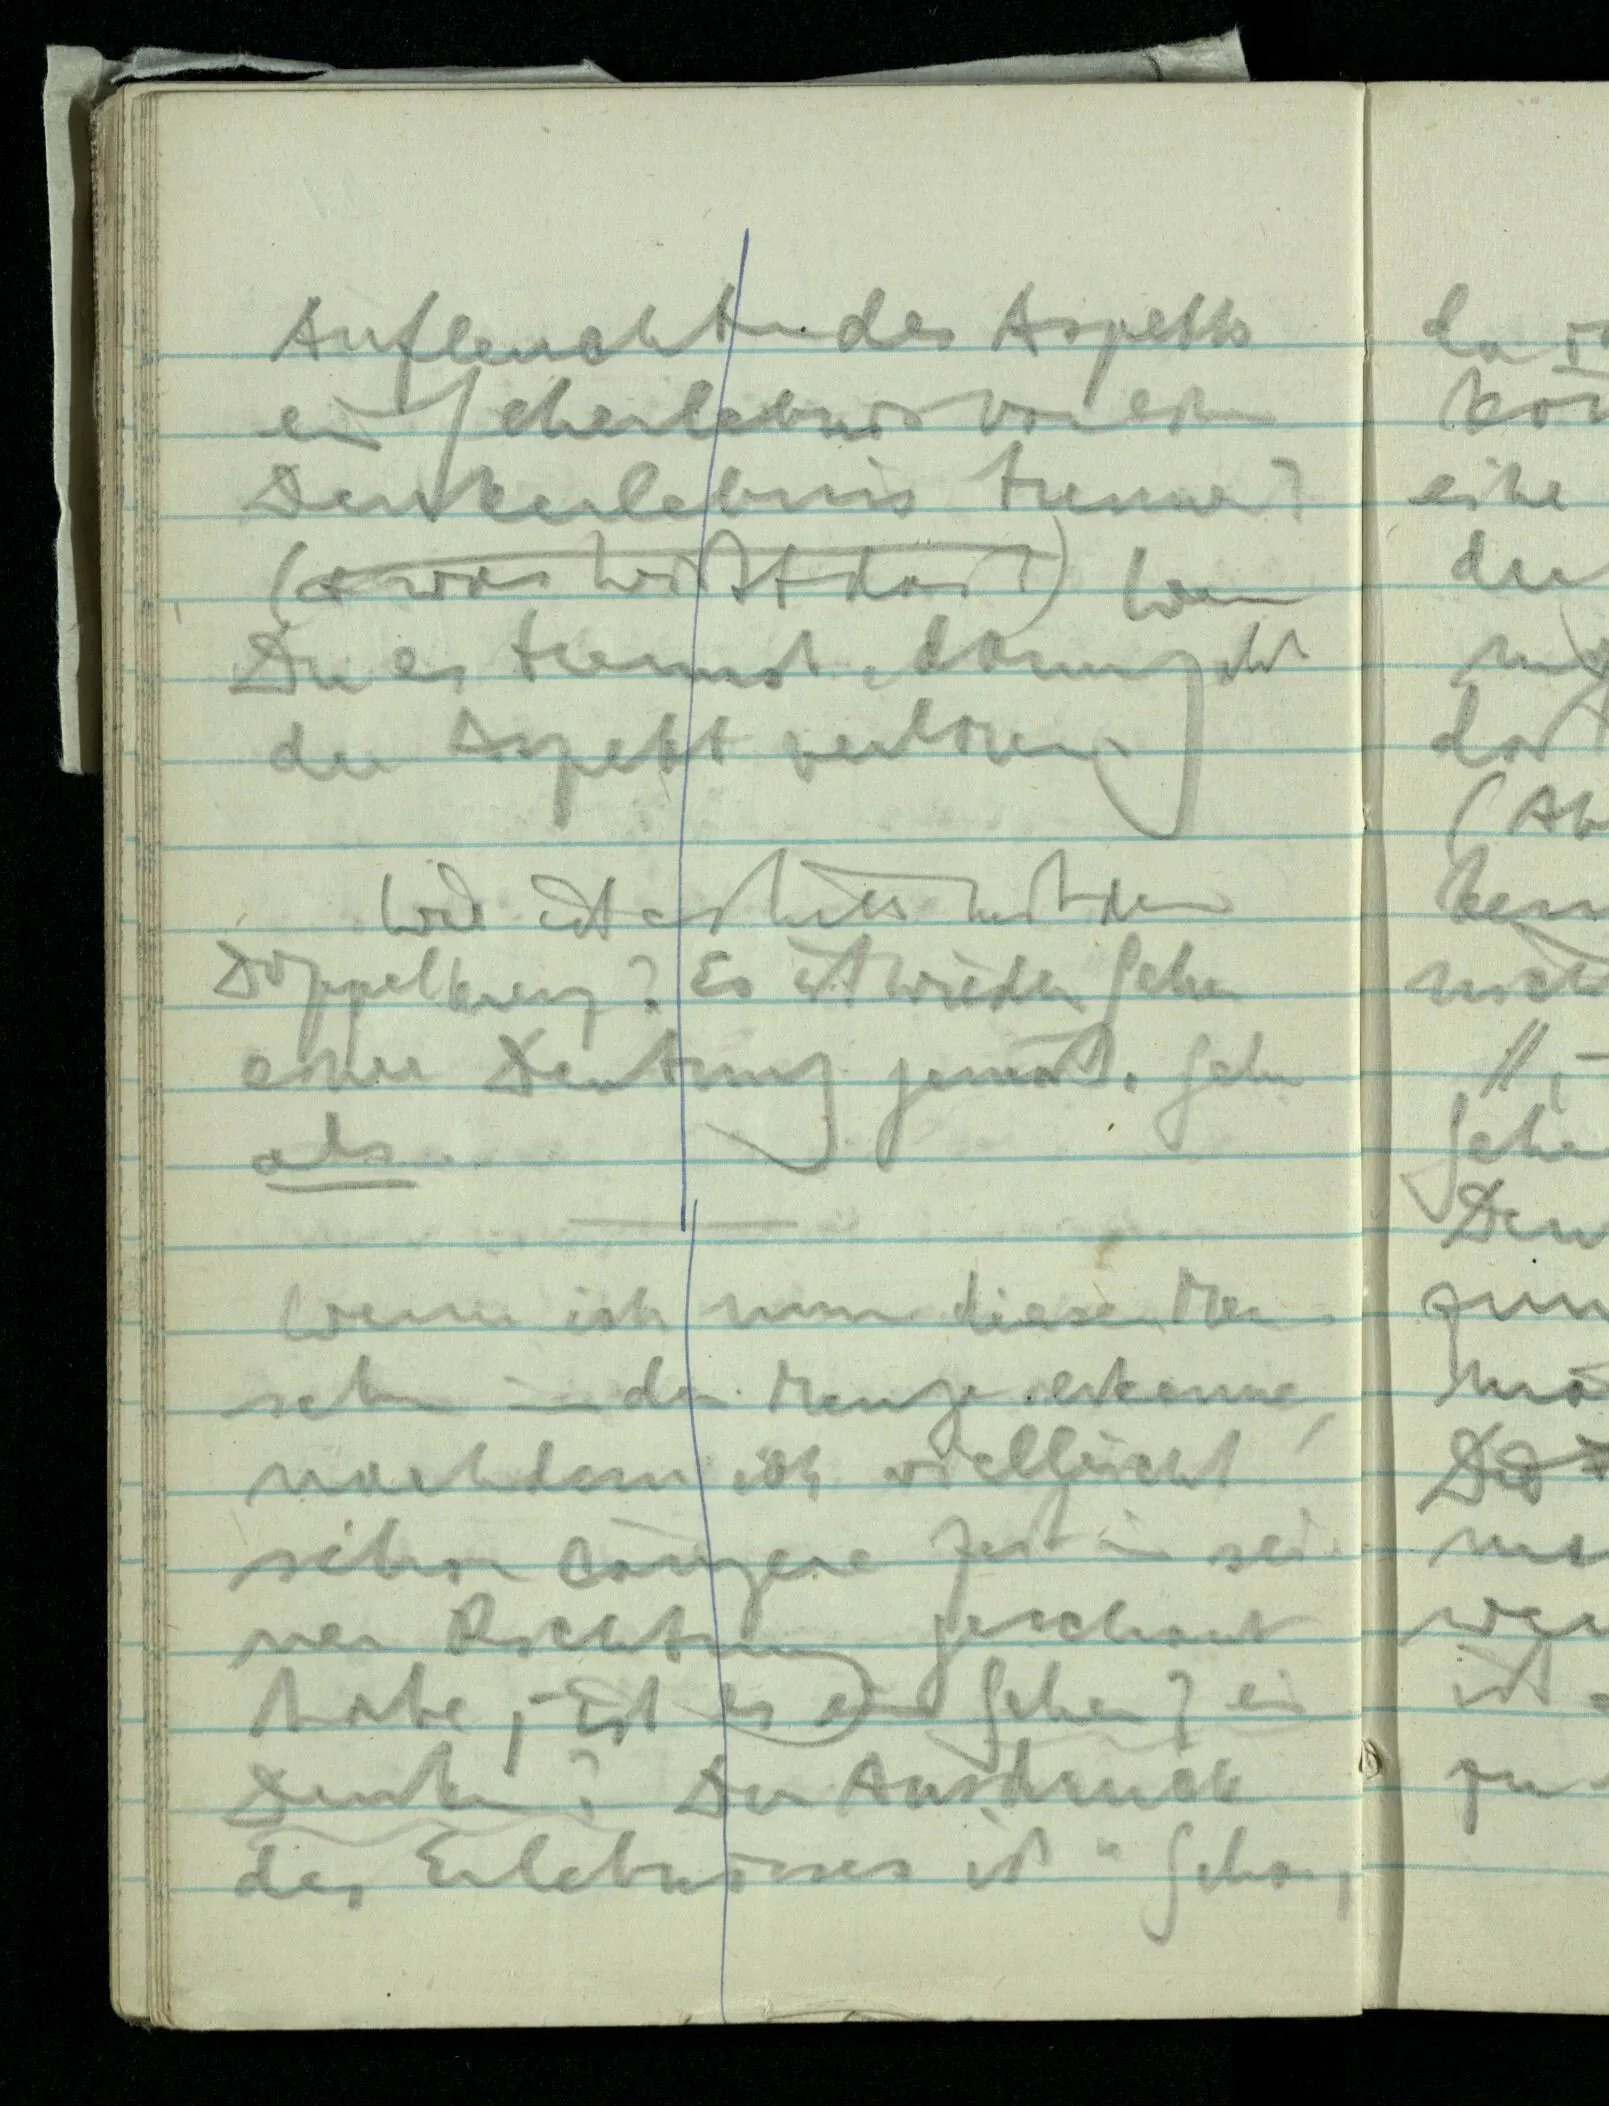 Aufleuchten des Aspekts
ein Seherlebnis von einem
Denkerlebnis trennen?
(& was heißt das?) Wenn
Du es trennst, dann geht
der Aspekt verloren.
Wie ist es hier mit dem
Doppelkreuz? Es ist wieder Sehen
einer Deutung gemäß. Sehen
als.
Wenn ich nun diesen Men-
schen in der Menge erkenne,
nachdem ich vielleicht
schon längere Zeit in sei-
ner Richtung geschaut
habe, – ist es ein Sehen? ein
Denken? Der Ausdruck
des Erlebnisses ist "Schau,
da
eine
der
das
(
nicht
//, –
Sehen
ist
zu